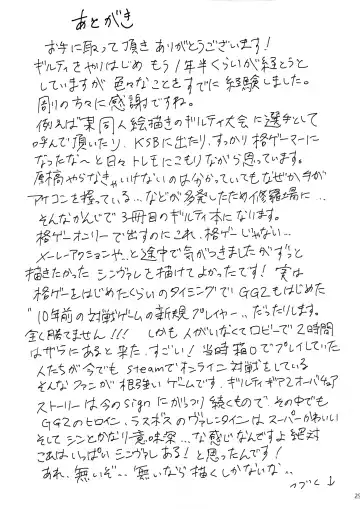 あとがき
お手に取って頂きありがとうございます!
ギルティをやりはじめもう1年半くらいが経とうと
していますが色々なことをすでに経験しました。
周りの方々に感謝ですね。
例えば某同人絵描きのギルティ大会に選手として
呼んで頂いたり、KSBに出たり、すっかり格ゲーマーに
なったな~と日々トレモにこもりながら思っています。
原稿やらなきゃいけないのは分かっていてもなぜか手が
アケコンを握っている…などが多発したため修羅場に…
そんなかんじで3冊目のギルティ本になります。
格ゲーオンリーで出すのにこれ、格ゲーじゃない…
メーレーアクションや…と途中で気がつきましたがずっと
描きたかったシンヴァレを描けてよかったです! 実は
格ゲーをはじめたくらいのタイミングでGG2もはじめた
"10年前の対戦ゲームの新規プレイヤー"だったりします。
全く勝てません!!! しかも人がいなくてロビーで2時間
はザラにあると来た、すごい! 当時箱〇でプレイしていた
人たちが今でもSteamでオンライン対戦をしている
そんなファンが根強いゲームです。ギルティギア2オーバチュア
ストーリーは今のsignにがっつり続くもので、その中でも
GG2のヒロイン、ラスボスのヴァレンタインはスーパーかわいい
そしてシンとかなり意味深…な感じなんですよ絶対
これはいっぱいシンヴァレある!と思ったんです!
あれ、無いぞ…無いなら描くしかないな…
つづく↓